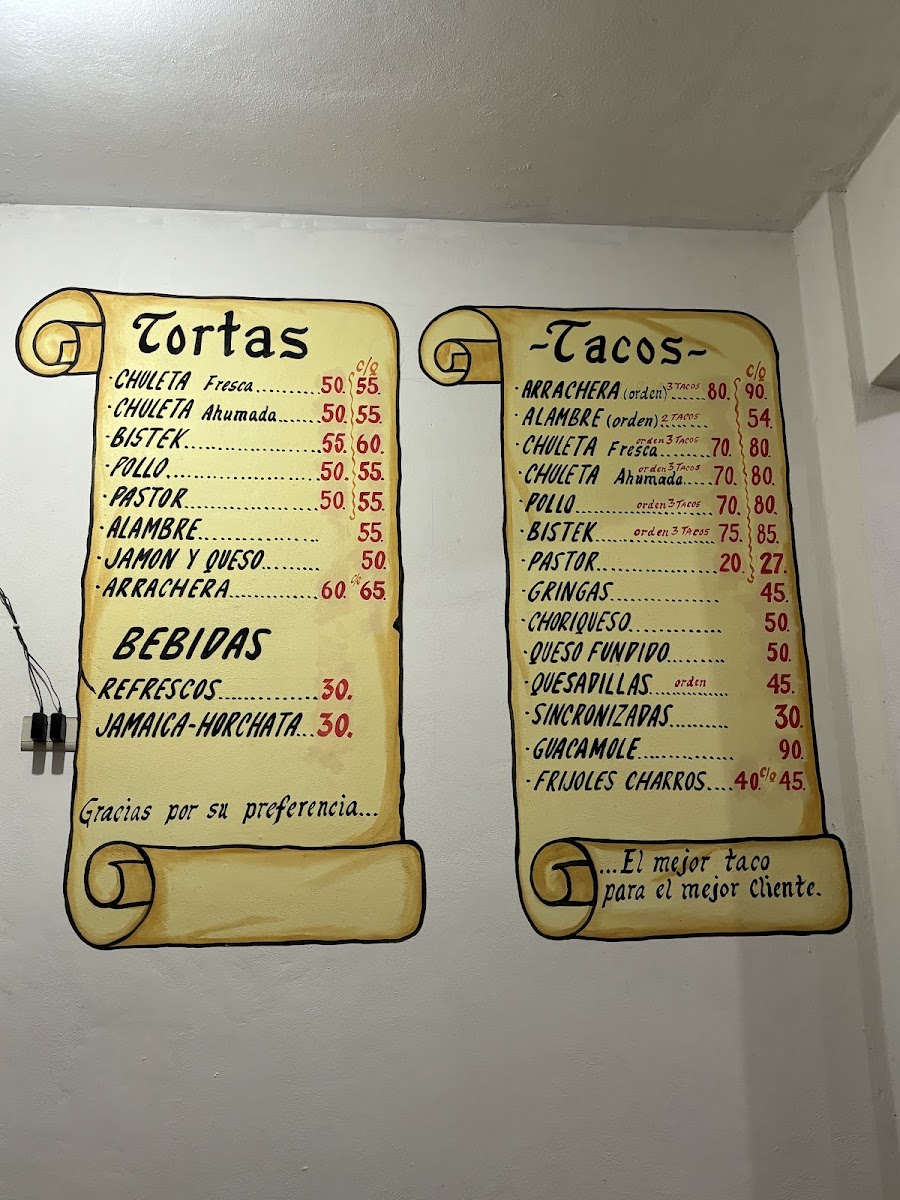 Tortas
c/q
·CHULETA Fresca......50. 55.
·CHULETA Ahumada......50. 55.
·BISTEK......55. 60.
·POLLO......50. 55.
·PASTOR......50. 55.
·ALAMBRE...... 55.
·JAMON Y QUESO...... 50.
·ARRACHERA......60. c/q 65.
BEBIDAS
REFRESCOS......30.
JAMAICA-HORCHATA...30.
Gracias por su preferencia...
-Tacos-
c/q
·ARRACHERA (orden) 3 TACOS......80. 90.
·ALAMBRE (orden) 2 TACOS...... 54.
·CHULETA Fresca orden 3 TACOS......70. 80.
·CHULETA Ahumada orden 3 TACOS......70. 80.
·POLLO orden 3 TACOS......70. 80.
·BISTEK orden 3 TACOS......75. 85.
·PASTOR......20. 27.
·GRINGAS...... 45.
·CHORIQUESO...... 50.
·QUESO FUNDIDO...... 50.
·QUESADILLAS orden...... 45.
·SINCRONIZADAS...... 30.
·GUACAMOLE...... 90.
·FRIJOLES CHARROS....40. c/q 45.
...El mejor taco
para el mejor Cliente.